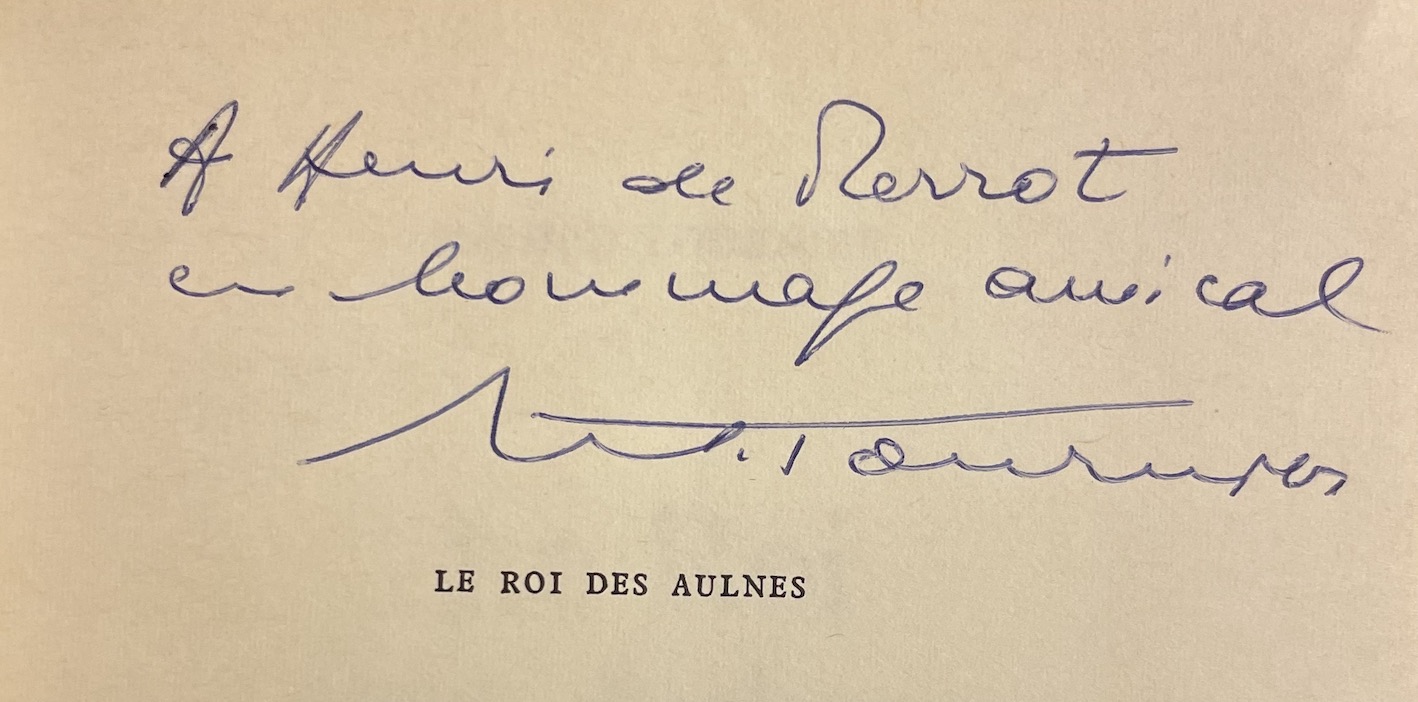 A Henri de Perrot
en hommage amical
M. Tournier
LE ROI DES AULNES